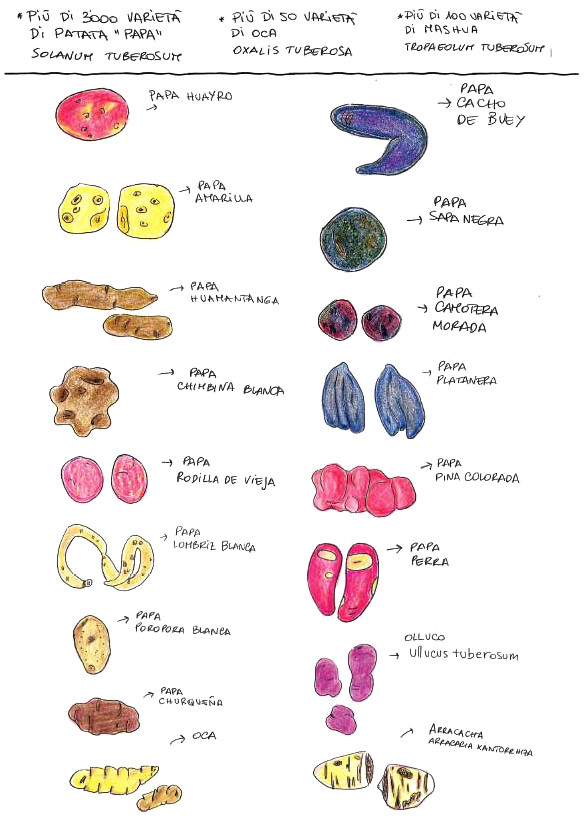 * PIÙ DI 3000 VARIETÀ
DI PATATA "PAPA"
SOLANUM TUBEROSUM
* PIÙ DI 50 VARIETÀ
DI OCA
OXALIS TUBEROSA
* PIÙ DI 100 VARIETÀ
DI MASHUA
TROPAEOLUM TUBEROSUM
PAPA HUAYRO
PAPA
CACHO
DE BUEY
PAPA
AMARILLA
PAPA
SAPA NEGRA
PAPA
HUAMANTANGA
PAPA
CAMOTERA
MORADA
PAPA
CHIMBINA BLANCA
PAPA
PLATANERA
PAPA
RODILLA DE VIEJA
PAPA
PINA COLORADA
PAPA
LOMBRIZ BLANCA
PAPA
PERRA
PAPA
POROPORA BLANCA
OLLUCO
Ullucus tuberosum
PAPA
CHURQUEÑA
OCA
ARRACACHA
ARRACARIA XANTORRHIZA